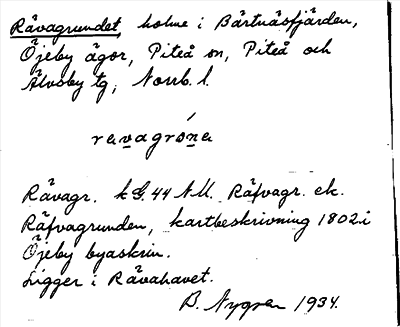 Rävagrundet, holme i Bärtnäsfjärden,
Öjeby ägor, Piteå sn, Piteå och
Älvsby tg, Norrb. l.
ravagróna
Rävagr. kG. 44 N.U. Räfvagr. ek.
Räfvagrunden, kartbeskrivning 1802 i
Öjeby byaskrin.
Ligger i Rävahavet.
B. Nygren 1934.